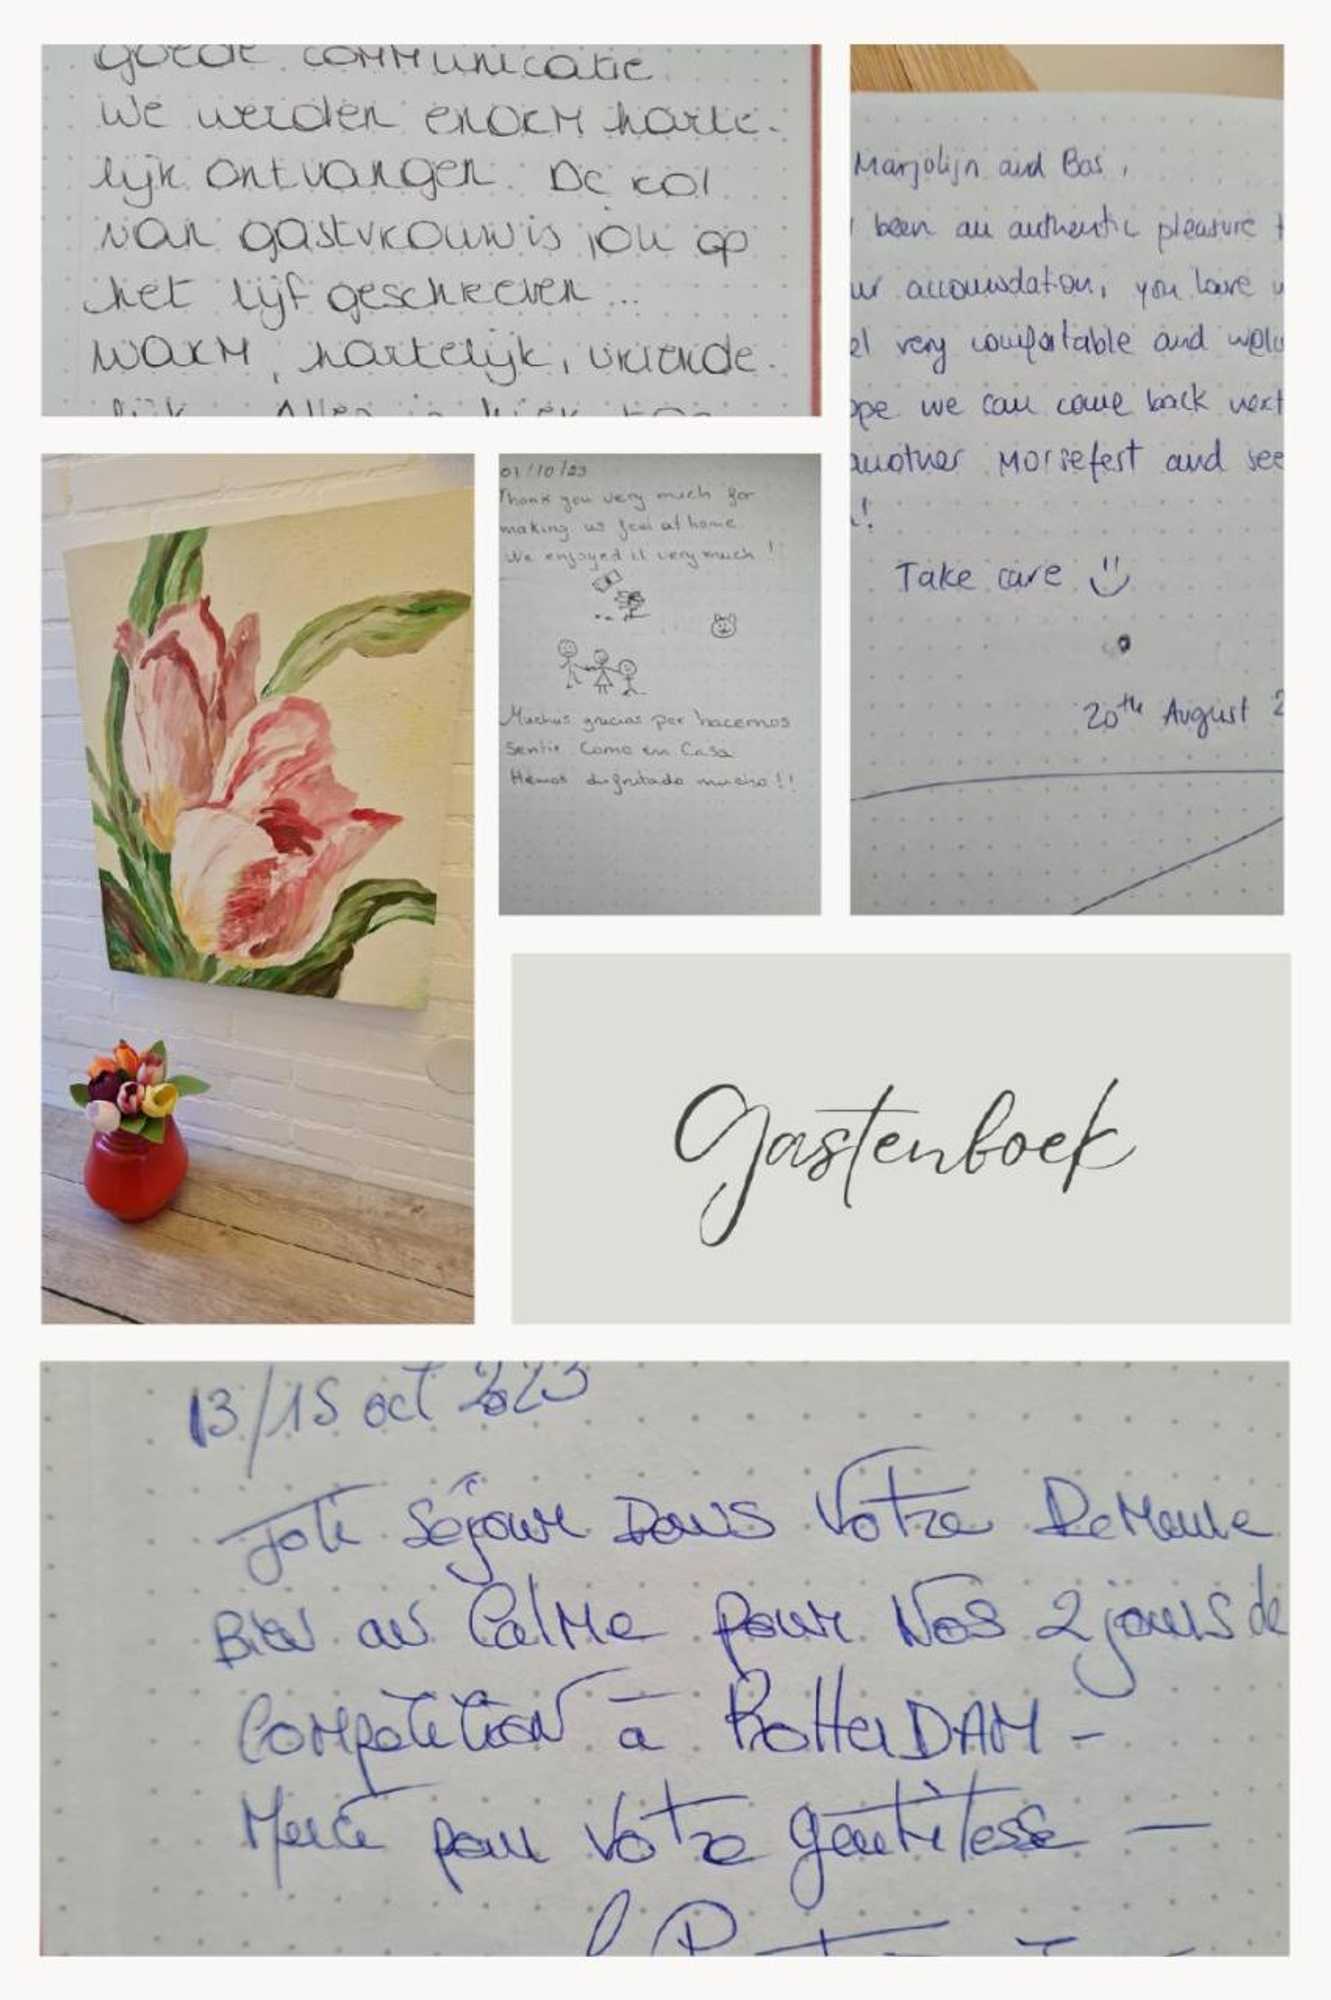 goede communicatie
We werden enorm harte-
lijk ontvangen. De rol
van gastvrouw is jou op
het lijf geschreven...
Warm, hartelijk, vriende-
lijk. Alles is hier
Marjolijn and Bas,
been an authentic pleasure t
ur accomodation, you have
el very comfortable and welc
ope we can come back next
another Morsefest and see
!
Take care
20th August 2
01/10/23
Thank you very much for
making us feel at home
We enjoyed it very much!
Muchas gracias por hacernos
sentir como en casa
Hemos disfrutado mucho!!
Gastenboek
13/15 oct 2023
Joli séjour Dans Votre Demeure
Bien au Calme pour Nos 2 jours de
Compétition à RotterDAM -
Merci pour Votre gentillesse —